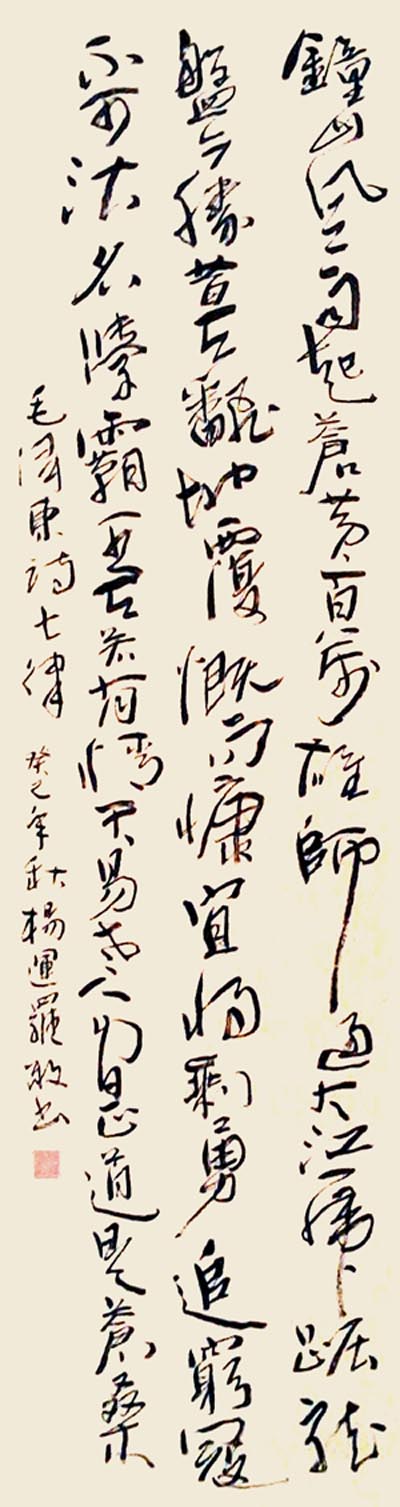 鐘山風雨起蒼黃百萬雄師過大江虎踞龍
盤今勝昔天翻地覆慨而慷宜將剩勇追窮寇
不可沽名學霸王天若有情天易老人間正道是蒼桑
毛澤東詩七律 癸巳年秋楊運羅敬書